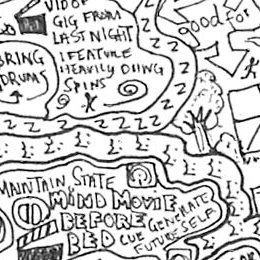 VIDOF
GIG FROM
LAST NIGHT
I FEATURE
HEAVILY DIING
SPINS
BRING
DRUMS
good for
MAINTAIN STATE
MIND MOVIE
BEFORE
BED
CUE GENERATE
FUTURE SELF